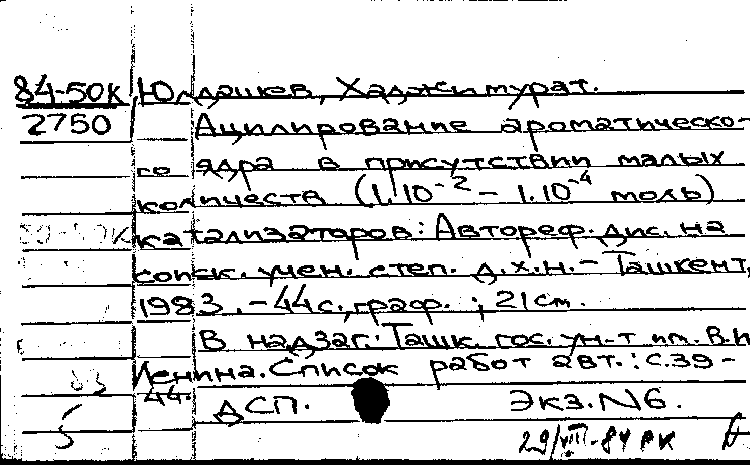 84-50к Юлдашев, Хаджимурат.
2750 Ацилирование ароматическо-
го ядра в присутствии малых
количеств (1.10⁻² – 1.10⁻⁴ моль)
катализаторов: Автореф. дис. на
соиск. учен. степ. д.х.н. – Ташкент,
1983. – 44 с., граф. ; 21 см.
В надзаг.: Ташк. гос. ун-т им. В.И.
Ленина. Список работ авт.: с. 39 –
44.
ДСП. Экз. N6.
29/VIII-84